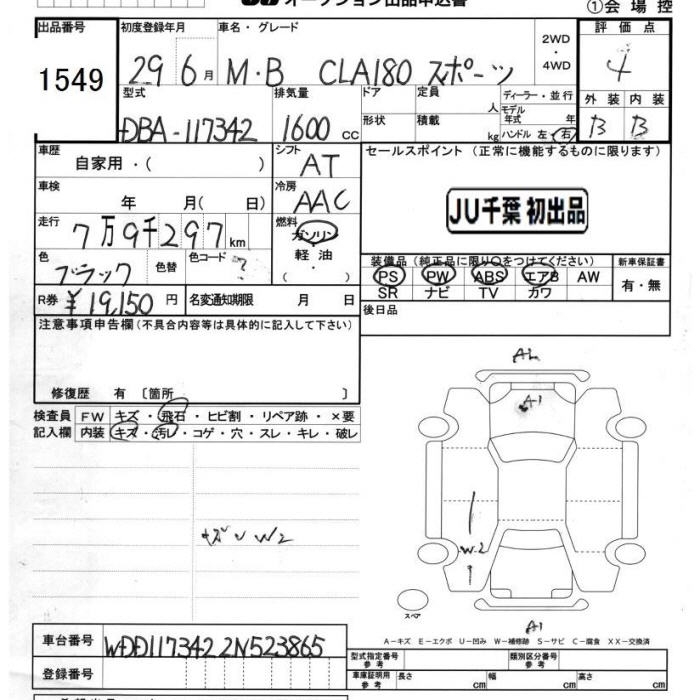 オークション出品申込書
①会場控
出品番号 初度登録年月 車名・グレード 2WD・4WD 評価点
1549 29 6月 M・B CLA180 スポーツ 4
型式 排気量 ドア 定員 人 ディーラー・並行 外装 内装
DBA-117342 1600cc 形状 積載 kg モデル年式 年 ハンドル 左・右 B B
車歴 自家用・( ) シフト AT セールスポイント (正常に機能するものに限ります)
車検 年 月( 日) 冷房 AAC
JU千葉 初出品
走行 7万9千297km 燃料 ガソリン・軽油・( )
色 ブラック 色替 色コード ?
装備品(純正品に限り○をつけてください) 新車保証書
PS PW ABS エアB AW 有・無
SR ナビ TV カワ
R券 ¥19,150円 名変通知期限 月 日
後日品
注意事項申告欄(不具合内容等は具体的に記入して下さい)
修復歴 有〔箇所 〕
検査員 FW キズ・飛石・ヒビ割・リペア跡・×要
記入欄 内装 キズ・汚レ・コゲ・穴・スレ・キレ・破レ
A1
W2
W2
スペア
A1
A-キズ E-エクボ U-凹み W-補修跡 S-サビ C-腐食 XX-交換済
車台番号 WDD1173422N523865
登録番号
型式指定番号 参考 類別区分番号 参考
車庫証明用 参考 長さ cm 幅 cm 高さ cm